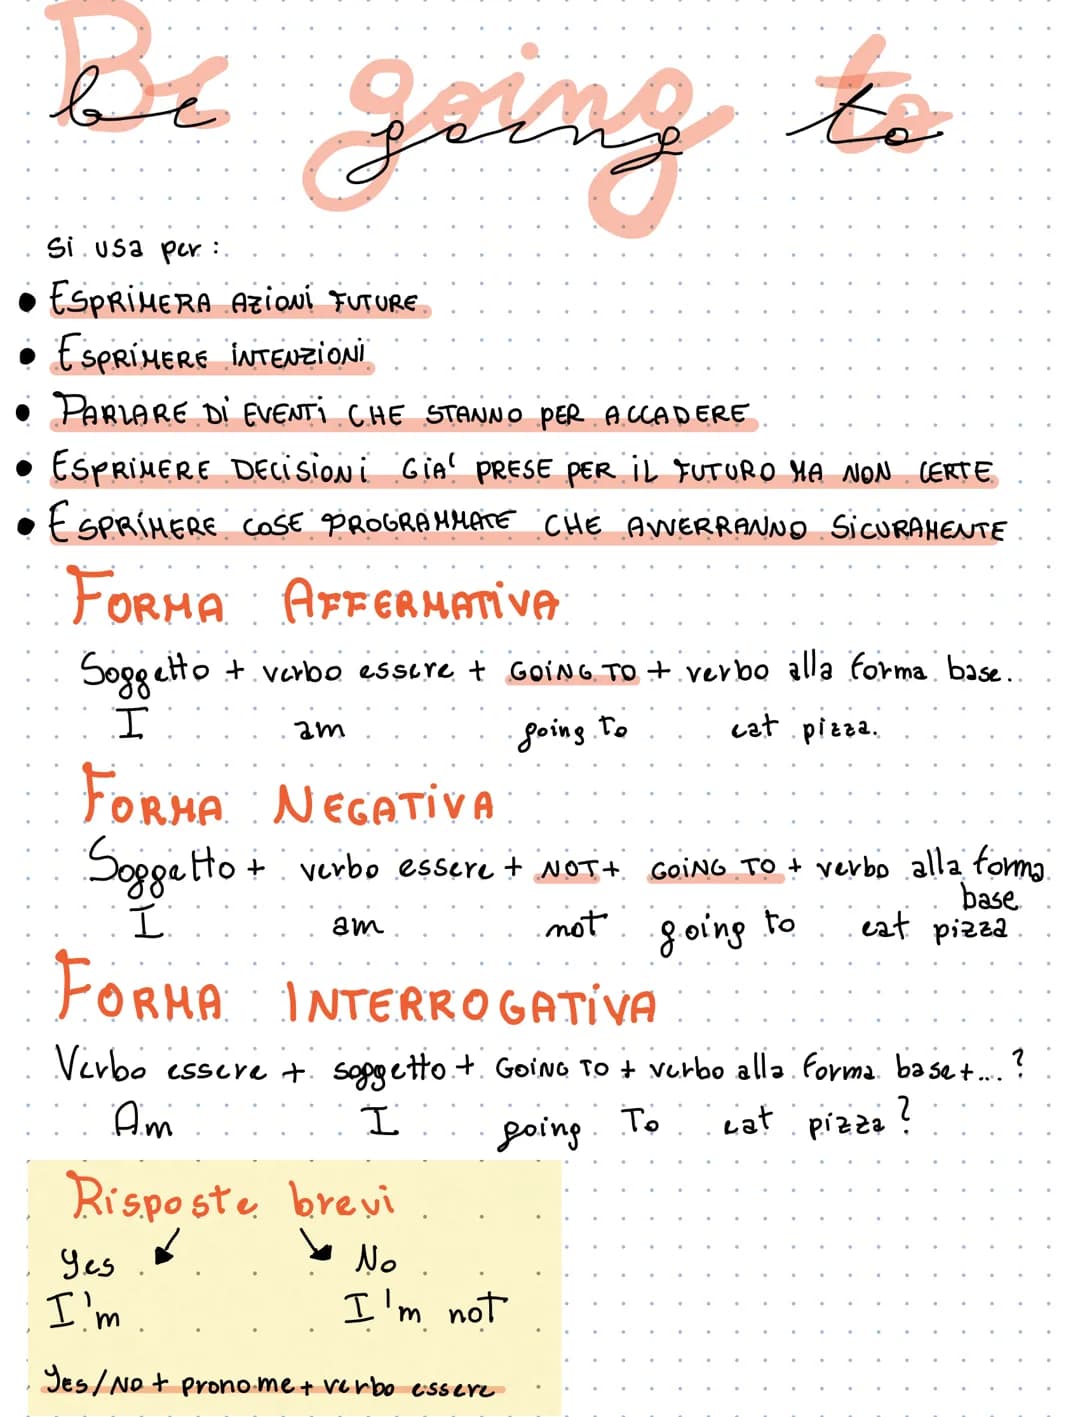 Be going to
be going to
si usa per:
• ESPRIMERA AZIONI FUTURE
• ESPRIMERE INTENZIONI
• PARLARE DI EVENTI CHE STANNO PER ACCADERE
• ESPRIMERE DECISIONI GIA' PRESE PER IL FUTURO MA NON CERTE
• ESPRIMERE COSE PROGRAMMATE CHE AVVERRANNO SICURAMENTE
FORMA AFFERMATIVA
Soggetto + verbo essere + GOING TO + verbo alla forma base.
I am going to eat pizza.
FORMA NEGATIVA
Soggetto + verbo essere + NOT + GOING TO + verbo alla forma
base
I am not going to eat pizza
FORMA INTERROGATIVA
Verbo essere + soggetto + GOING TO + verbo alla forma base+....?
Am I going To eat pizza?
Risposte brevi
Yes No
I'm I'm not
Yes/No + pronome + verbo essere